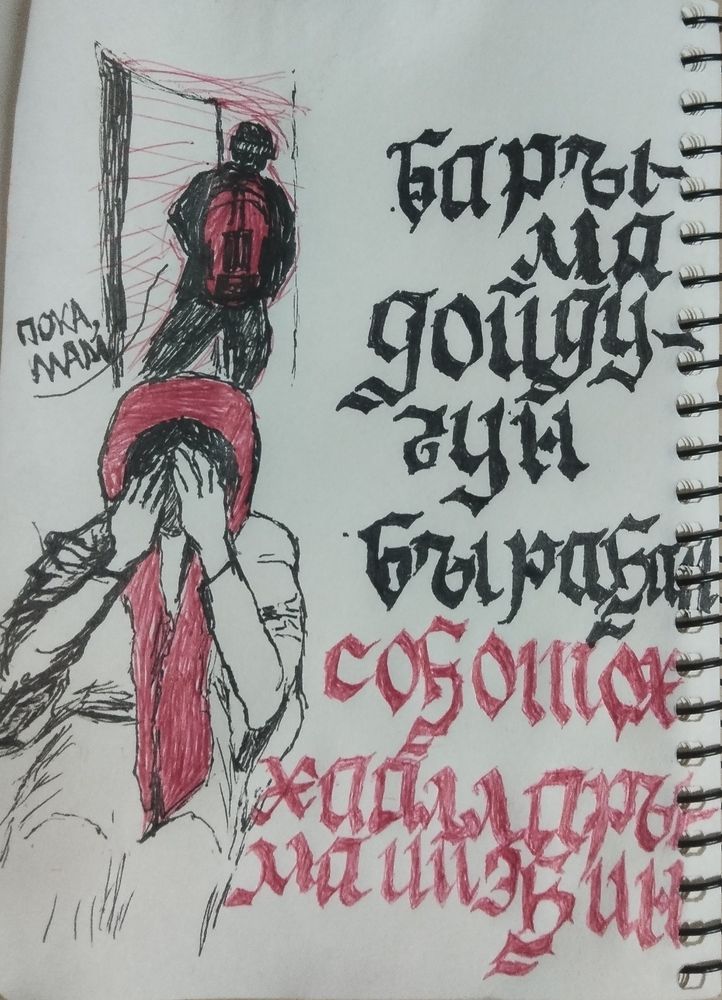 ПОКА,
МАМ
бары-
ма
дойду-
гун
быраҕан
соҕотох
хааллары-
ма ийэҕин